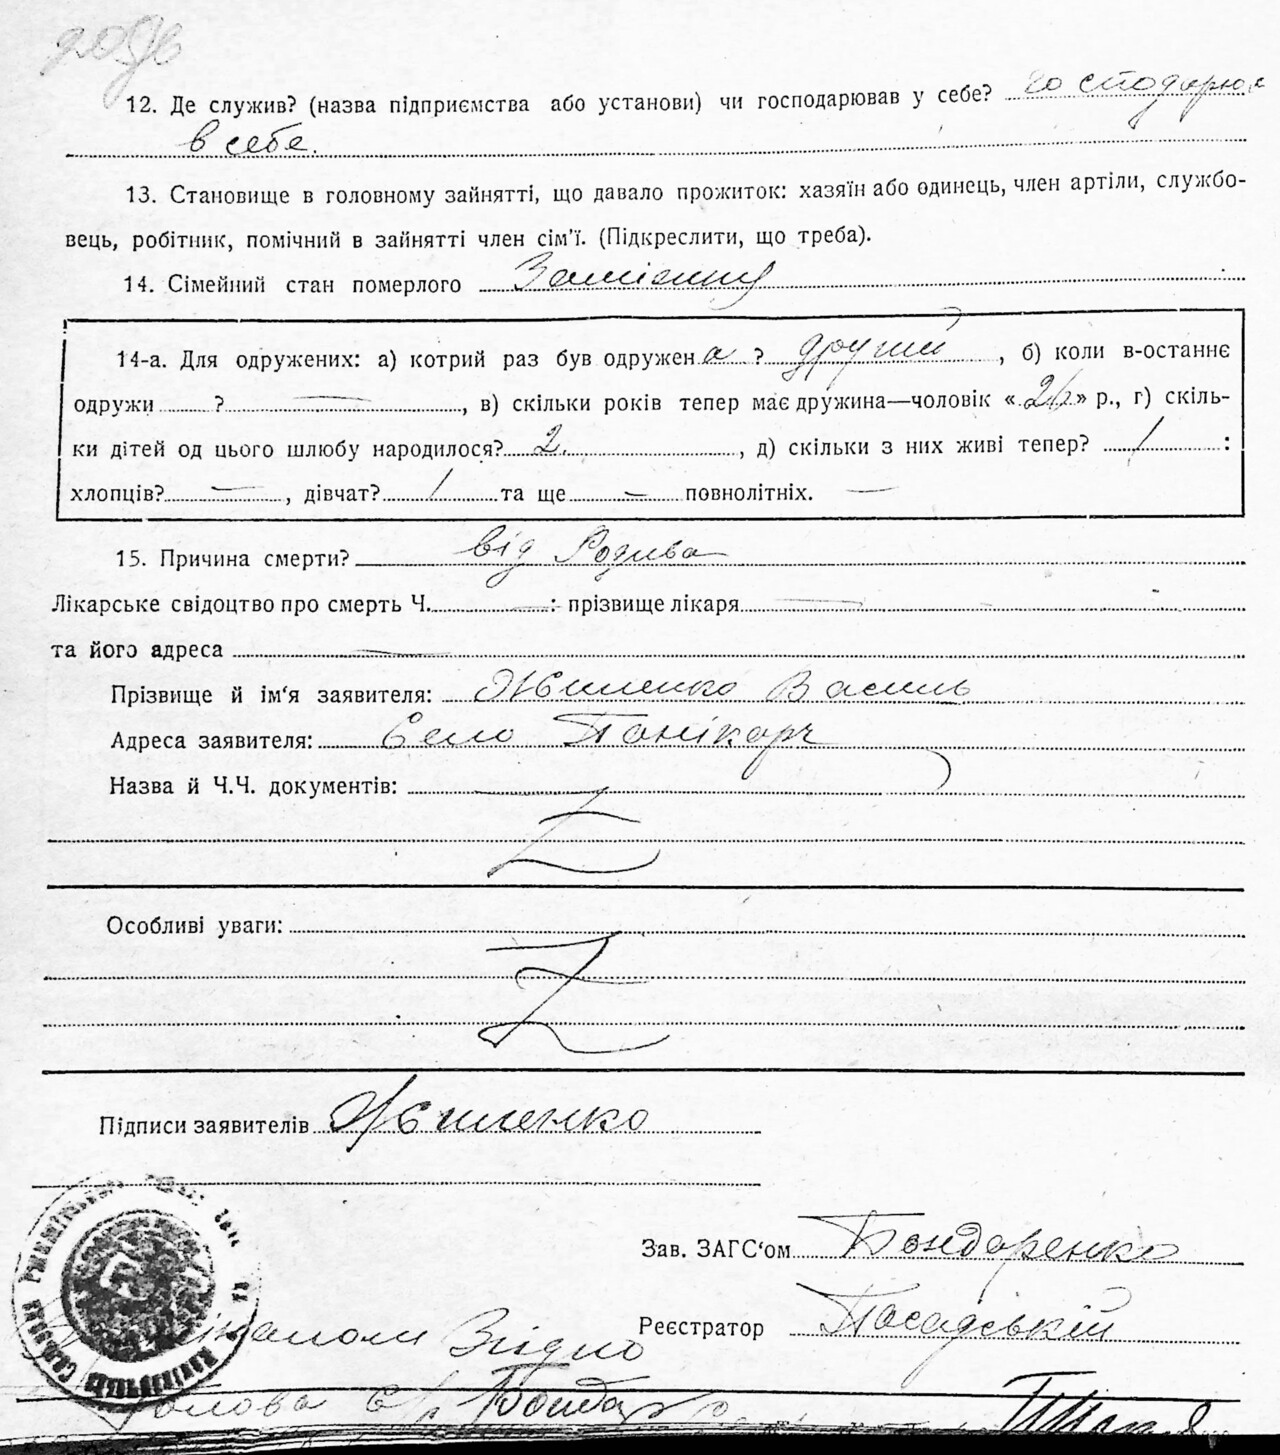 12. Де служив? (назва підприємства або установи) чи господарював у себе? господарює
в себе.
13. Становище в головному зайнятті, що давало прожиток: хазяїн або одинець, член артіли, службо-
вець, робітник, помічний в зайнятті член сім'ї. (Підкреслити, що треба).
14. Сімейний стан померлого
14-а. Для одружених: а) котрий раз був одружена ? другий, б) коли в-останнє
одружи ? —, в) скільки років тепер має дружина—чоловік «26» р., г) скіль-
ки дітей од цього шлюбу народилося? 2, д) скільки з них живі тепер? 1 :
хлопців? —, дівчат? 1 та ще — повнолітніх. —
15. Причина смерти? від
Лікарське свідоцтво про смерть Ч. — : прізвище лікаря —
та його адреса —
Прізвище й ім'я заявителя: Василь
Адреса заявителя: Село Панікарч
Назва й Ч.Ч. документів:
Особливі уваги:
Підписи заявителів
Зав. ЗАГС'ом Бондаренко
Реєстратор Посадській
Згідно
Голова с/р Бондар